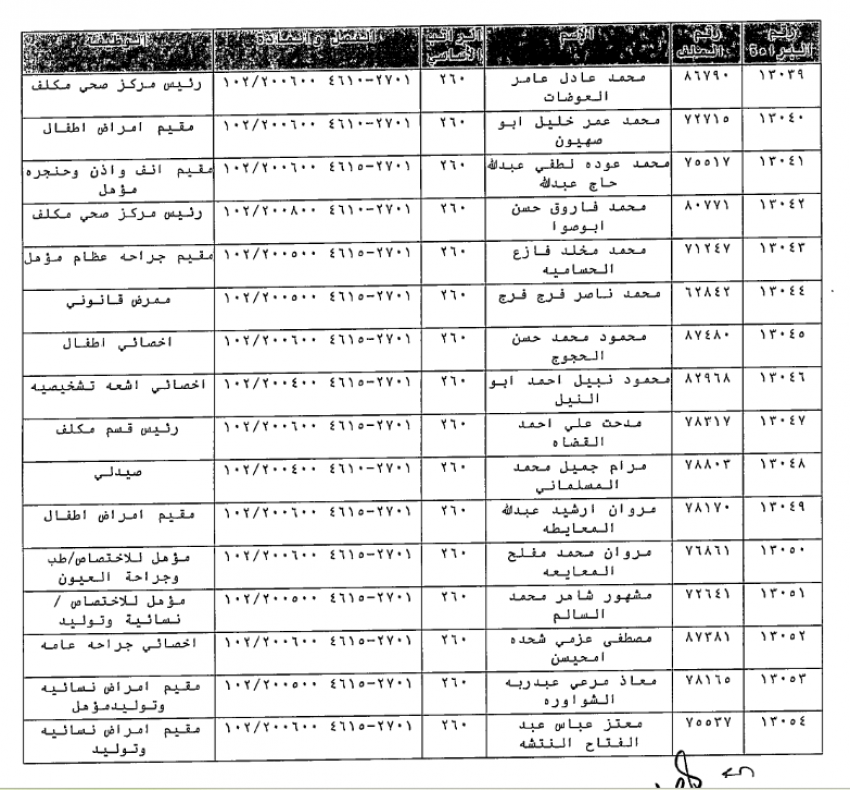 رقم رقم الاسم الراتب الفصل والمادة الوظيفة
الملف الأساسي
١٣٠٣٩ ٨٦٧٩٠ محمد عادل عامر ٢٦٠ ١٠٢/٢٠٠٦٠٠ ٤٦١٠-٢٧٠١ رئيس مركز صحي مكلف
العوضات
١٣٠٤٠ ٧٢٧١٥ محمد عمر خليل ابو ٢٦٠ ١٠٢/٢٠٠٦٠٠ ٤٦١٠-٢٧٠١ مقيم امراض اطفال
صهيون
١٣٠٤١ ٧٥٥١٧ محمد عوده لطفي عبدالله ٢٦٠ ١٠٢/٢٠٠٦٠٠ ٤٦١٥-٢٧٠١ مقيم انف واذن وحنجره
حاج عبدالله مؤهل
١٣٠٤٢ ٨٠٧٧١ محمد فاروق حسن ٢٦٠ ١٠٢/٢٠٠٨٠٠ ٤٦١٠-٢٧٠١ رئيس مركز صحي مكلف
ابوصوا
١٣٠٤٣ ٧١٢٤٧ محمد مخلد فازع ٢٦٠ ١٠٢/٢٠٠٥٠٠ ٤٦١٥-٢٧٠١ مقيم جراحه عظام مؤهل
الحساميه
١٣٠٤٤ ٦٢٨٤٢ محمد ناصر فرج فرج ٢٦٠ ١٠٢/٢٠٠٥٠٠ ٤٦١٥-٢٧٠١ ممرض قانوني
١٣٠٤٥ ٨٧٤٨٠ محمود محمد حسن ٢٦٠ ١٠٢/٢٠٠٦٠٠ ٤٦١٥-٢٧٠١ اخصائي اطفال
الحجوج
١٣٠٤٦ ٨٢٩٦٨ محمود نبيل احمد ابو ٢٦٠ ١٠٢/٢٠٠٤٠٠ ٤٦١٥-٢٧٠١ اخصائي اشعه تشخيصيه
النيل
١٣٠٤٧ ٧٨٣١٧ مدحت علي احمد ٢٦٠ ١٠٢/٢٠٠٦٠٠ ٤٦١٥-٢٧٠١ رئيس قسم مكلف
القضاه
١٣٠٤٨ ٧٨٨٠٣ مرام جميل محمد ٢٦٠ ١٠٢/٢٠٠٤٠٠ ٤٦١٠-٢٧٠١ صيدلي
المسلماني
١٣٠٤٩ ٧٨١٧٠ مروان ارشيد عبدالله ٢٦٠ ١٠٢/٢٠٠٦٠٠ ٤٦١٥-٢٧٠١ مقيم امراض اطفال
المعايطه
١٣٠٥٠ ٧٦٨٦١ مروان محمد مفلح ٢٦٠ ١٠٢/٢٠٠٦٠٠ ٤٦١٥-٢٧٠١ مؤهل للاختصاص/طب
المعايعه وجراحة العيون
١٣٠٥١ ٧٢٦٤١ مشهور شاهر محمد ٢٦٠ ١٠٢/٢٠٠٥٠٠ ٤٦١٥-٢٧٠١ مؤهل للاختصاص /
السالم نسائية وتوليد
١٣٠٥٢ ٨٧٣٨١ مصطفى عزمي شحده ٢٦٠ ١٠٢/٢٠٠٦٠٠ ٤٦١٥-٢٧٠١ اخصائي جراحه عامه
امحيسن
١٣٠٥٣ ٧٨١٦٥ معاذ مرعي عبدربه ٢٦٠ ١٠٢/٢٠٠٥٠٠ ٤٦١٥-٢٧٠١ مقيم امراض نسائيه
الشواوره وتوليدمؤهل
١٣٠٥٤ ٧٥٥٣٧ معتز عباس عبد ٢٦٠ ١٠٢/٢٠٠٦٠٠ ٤٦١٥-٢٧٠١ مقيم امراض نسائيه
الفتاح النتشه وتوليد